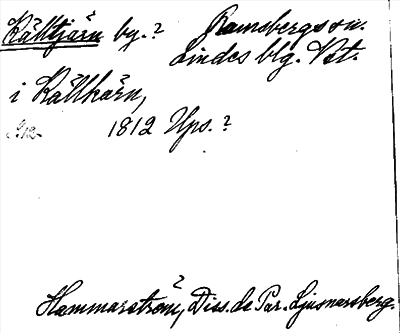 Källtjärn by.? Ramsbergs sn.
Lindes blg. Vst.
i Källkärn,
1812 Ups.?
Hammarström, Diss. de Par. Ljusnarsberg.